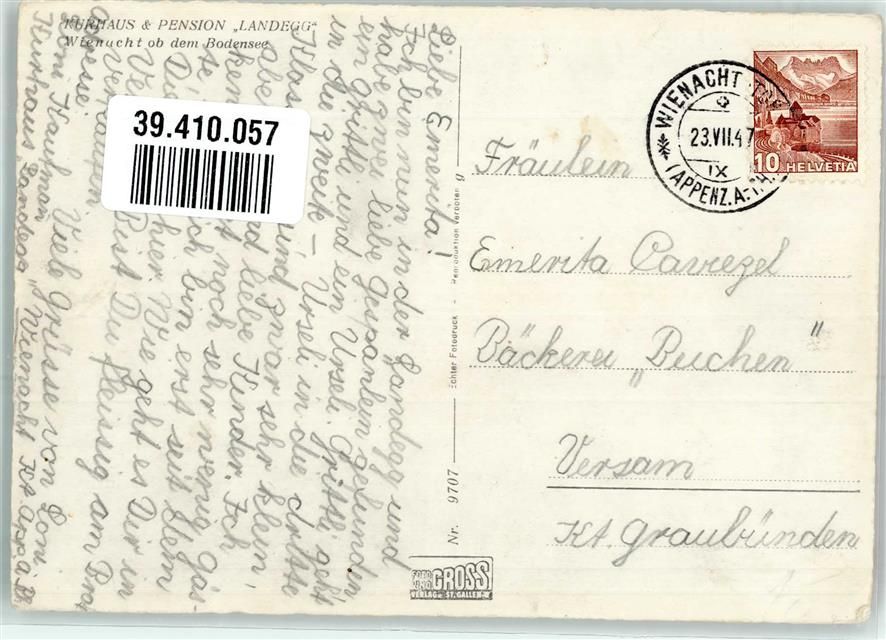 KURHAUS & PENSION „LANDEGG"
Wienacht ob dem Bodensee
39.410.057
Liebe Emerita!
Ich bin nun in der Landegg und
habe zwei liebe Gespänlein gefunden
ein Gritli und ein Urseli. Gritli geht
in die zweite – Urseli in die dritte
Klas und zwar sehr klein,
aber d liebe Kinder. Ich
ken noch sehr wenig Gäs-
te, ch bin erst seit dem
Di hier. Wie geht es Dir in
Ver Bist Du fleissig am Brot
vertragen
Viele Grüsse von Loni.
Adresse:
Loni Kaufman
Kurhaus Landegg „Wienacht Kt. App. a. Rh
Nr. 9707
Echter Fotodruck - Reproduktion verboten
g
FOTO UND GROSS
VERLAG ST. GALLEN
WIENACHT
23.VII.47
IX
(APPENZ.A.-RH.)
10 HELVETIA
Fräulein
Emerita Caviezel
Bäckerei „Buchen"
Versam
Kt. Graubünden